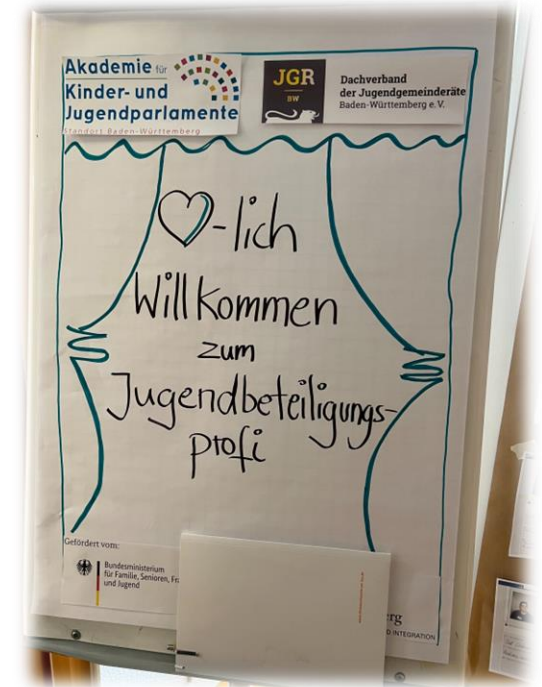 Akademie für
Kinder- und
Jugendparlamente
Standort Baden-Württemberg
JGR
BW
Dachverband
der Jugendgemeinderäte
Baden-Württemberg e. V.
♡-lich
Willkommen
zum
Jugendbeteiligungs-
profi
Gefördert vom:
Bundesministerium
für Familie, Senioren, Fra
und Jugend
rg
D INTEGRATION